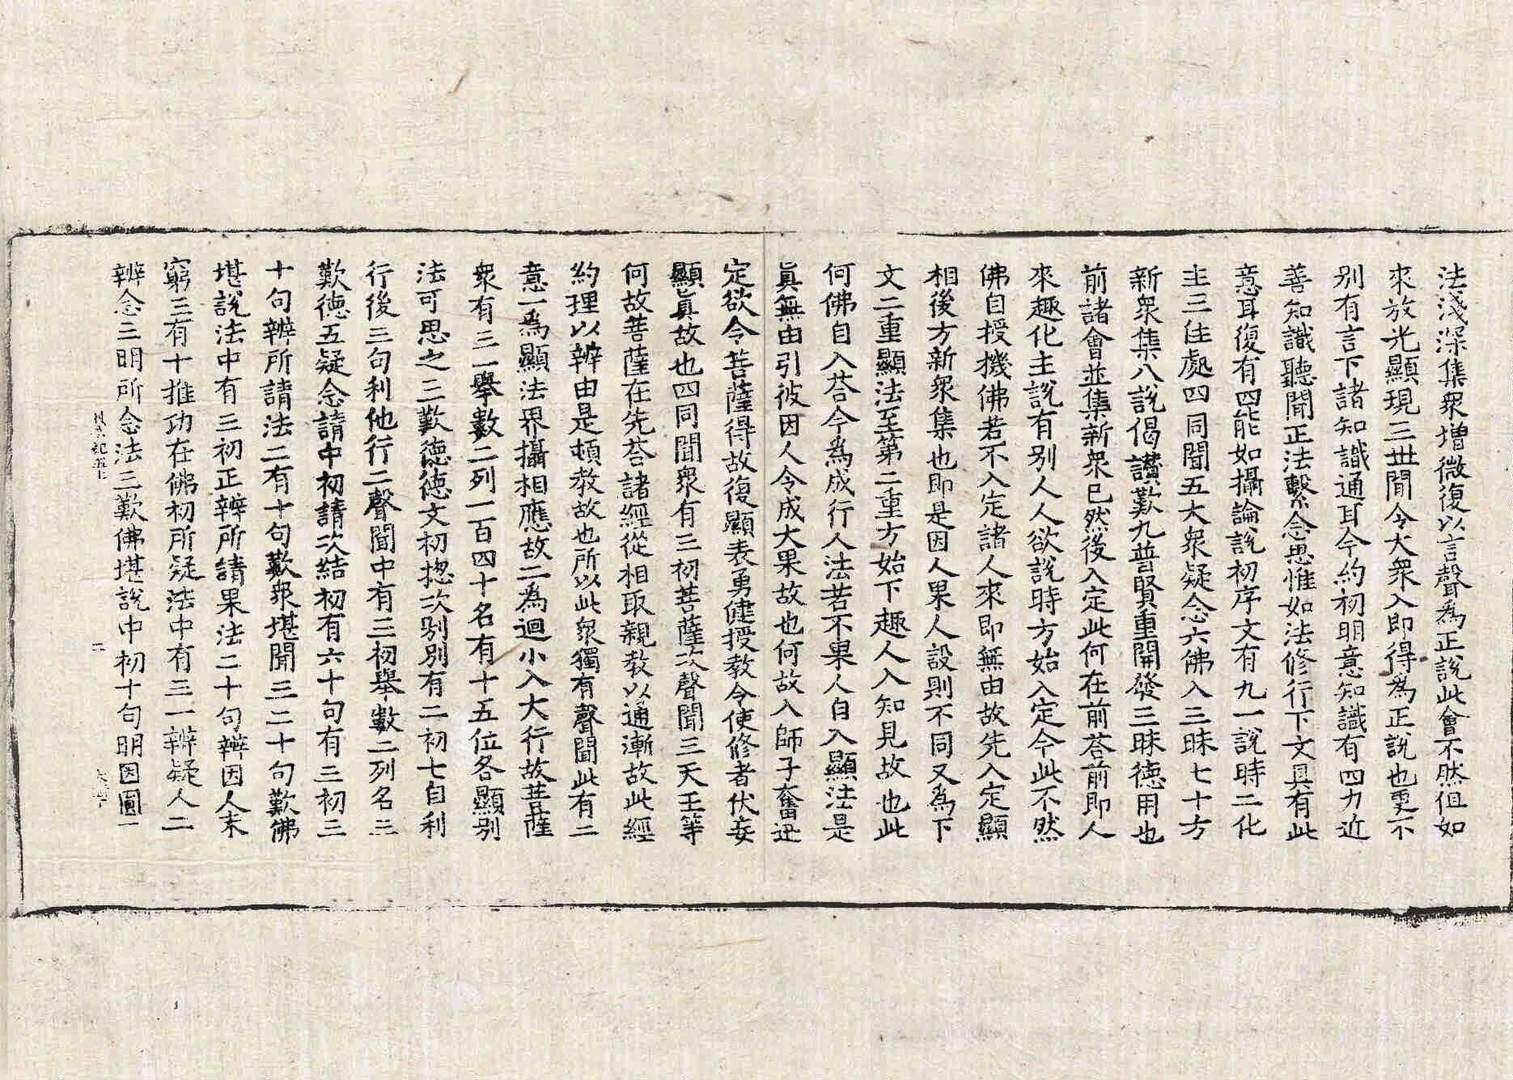 法淺深集衆增微復以言聲為正說此會不然但如
來放光顯現三世間令大衆入即得為正說也更不
別有言下諸知識通耳今約初明意知識有四力近
善知識聽聞正法繫念思惟如法修行下文具有此
意耳復有四能如攝論說初序文有九一說時二化
主三住處四同聞五大衆疑念六佛入三昧七十方
新衆集八說偈讚歎九普賢重開發三昧德用也
前諸會並集新衆已然後入定此何在前荅前即人
來趣化主說有別人人欲說時方始入定今此不然
佛自授機佛若不入定諸人來即無由故先入定顯
相後方新衆集也即是因人果人設則不同又為下
文二重顯法至第二重方始下趣人入知見故也此
何佛自入荅今為成行人法若不果人自入顯法是
眞無由引彼因人令成大果故也何故入師子奮迅
定欲令菩薩得故復顯表勇健授教令使修者伏妄
顯眞故也四同聞衆有三初菩薩次聲聞三天王等
何故菩薩在先荅諸經從相取親教以通漸故此經
約理以辨由是頓教故也所以此衆獨有聲聞此有二
意一為顯法界攝相應故二為迴小入大行故菩薩
衆有三一舉數二列一百四十名有十五位各顯別
法可思之三歎德德文初揔次別別有二初七自利
行後三句利他行二聲聞中有三初舉數二列名三
歎德五疑念請中初請次結初有六十句有三初三
十句辨所請法二有十句歎衆堪聞三二十句歎佛
堪說法中有三初正辨所請果法二十句辨因人未
窮三有十推功在佛初所疑法中有三一辨疑人二
辨念三明所念法三歎佛堪說中初十句明因圓一
二